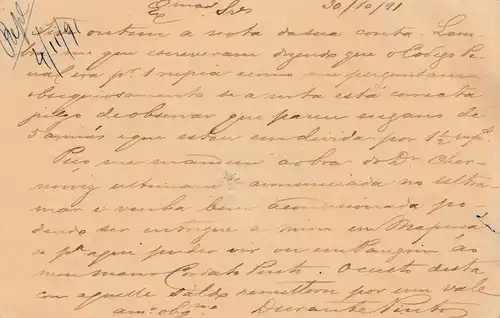 Exmos Snrs 30/10/91
ontem a nota da sua conta. Lem-
que escreveram dizendo que o Codigo Pe-
nal era pr. 1 rupia e como me perguntam
obsequiosamente se a nota está correcta
julgo de observar que parece engano de
5 annás e que estou em divida por 1½ rup.
Peço me mandem a obra do Dr. Cher-
noviz ultimam. annunciada no Ultra-
mar e venha bem acondicionada po-
dendo ser entregue a mim em Mapuça
e pa. aqui puder vir ou em Pangim ao
meu mano Conrado Pinto. O custo desta
com aquelle saldo remetterei por um vale
amo. obgmo. Durante Pinto